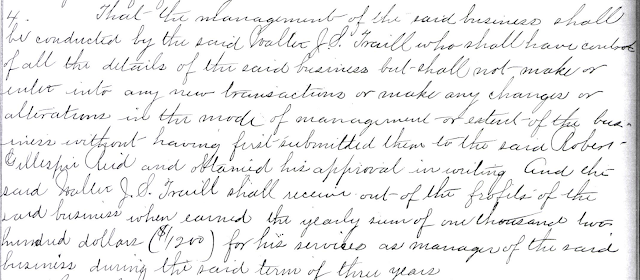 4. That the management of the said business shall
be conducted by the said Walter J. S. Traill who shall have control
of all the details of the said business but shall not make or
enter into any new transactions or make any changes or
alterations in the mode of management or extent of the bus-
iness without having first submitted them to the said Robert
Gillespie Reid and obtained his approval in writing And the
said Walter J. S. Traill shall receive out of the profits of the
said business when earned the yearly sum of one thousand two
hundred dollars ($1200) for his services as manager of the said
business during the said term of three years